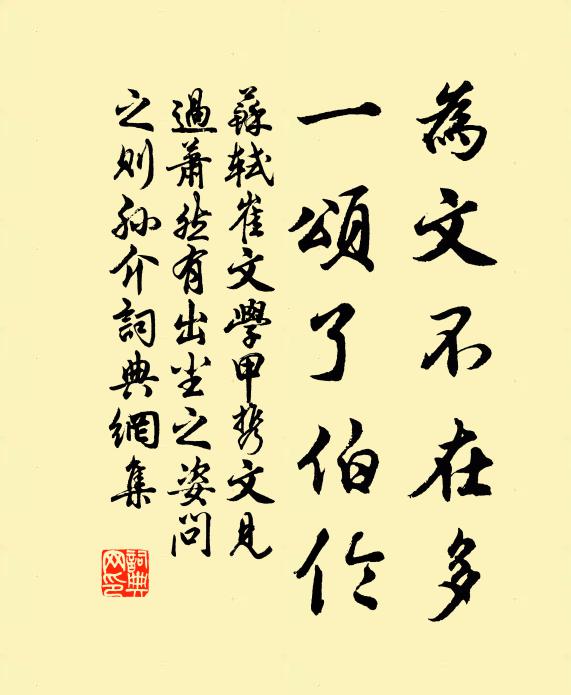 為文不在多
一頌了伯伶
蘇軾崔文學甲攜文見
過蕭然有出塵之姿問
之則孫介詞典網集
詞典网印